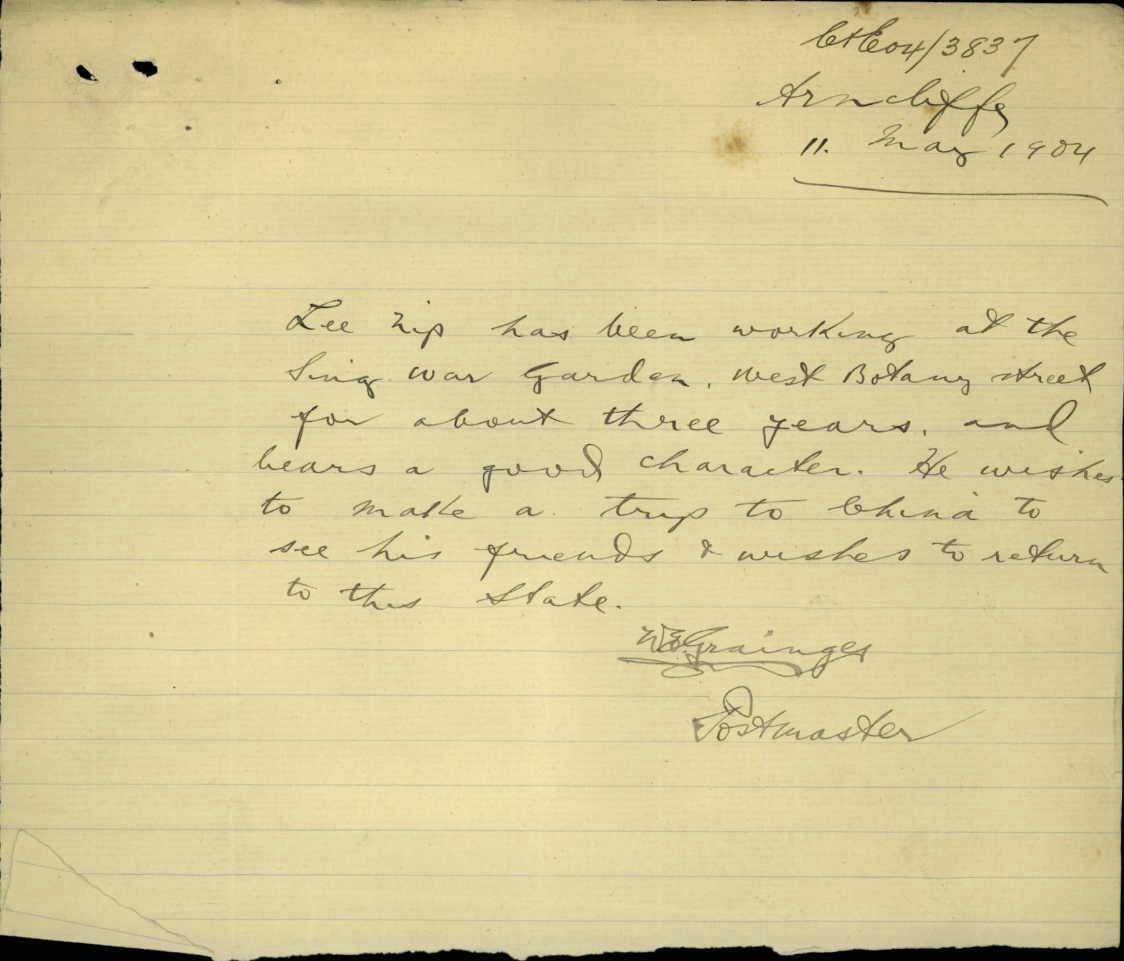 C+E04/3837
Arncliffe
11. May 1904
Lee Yip has been working at the
Sing War Garden, West Botany street
for about three years, and
bears a good character. He wishes
to make a trip to China to
see his friends & wishes to return
to this State.
W.E. Grainger
Postmaster